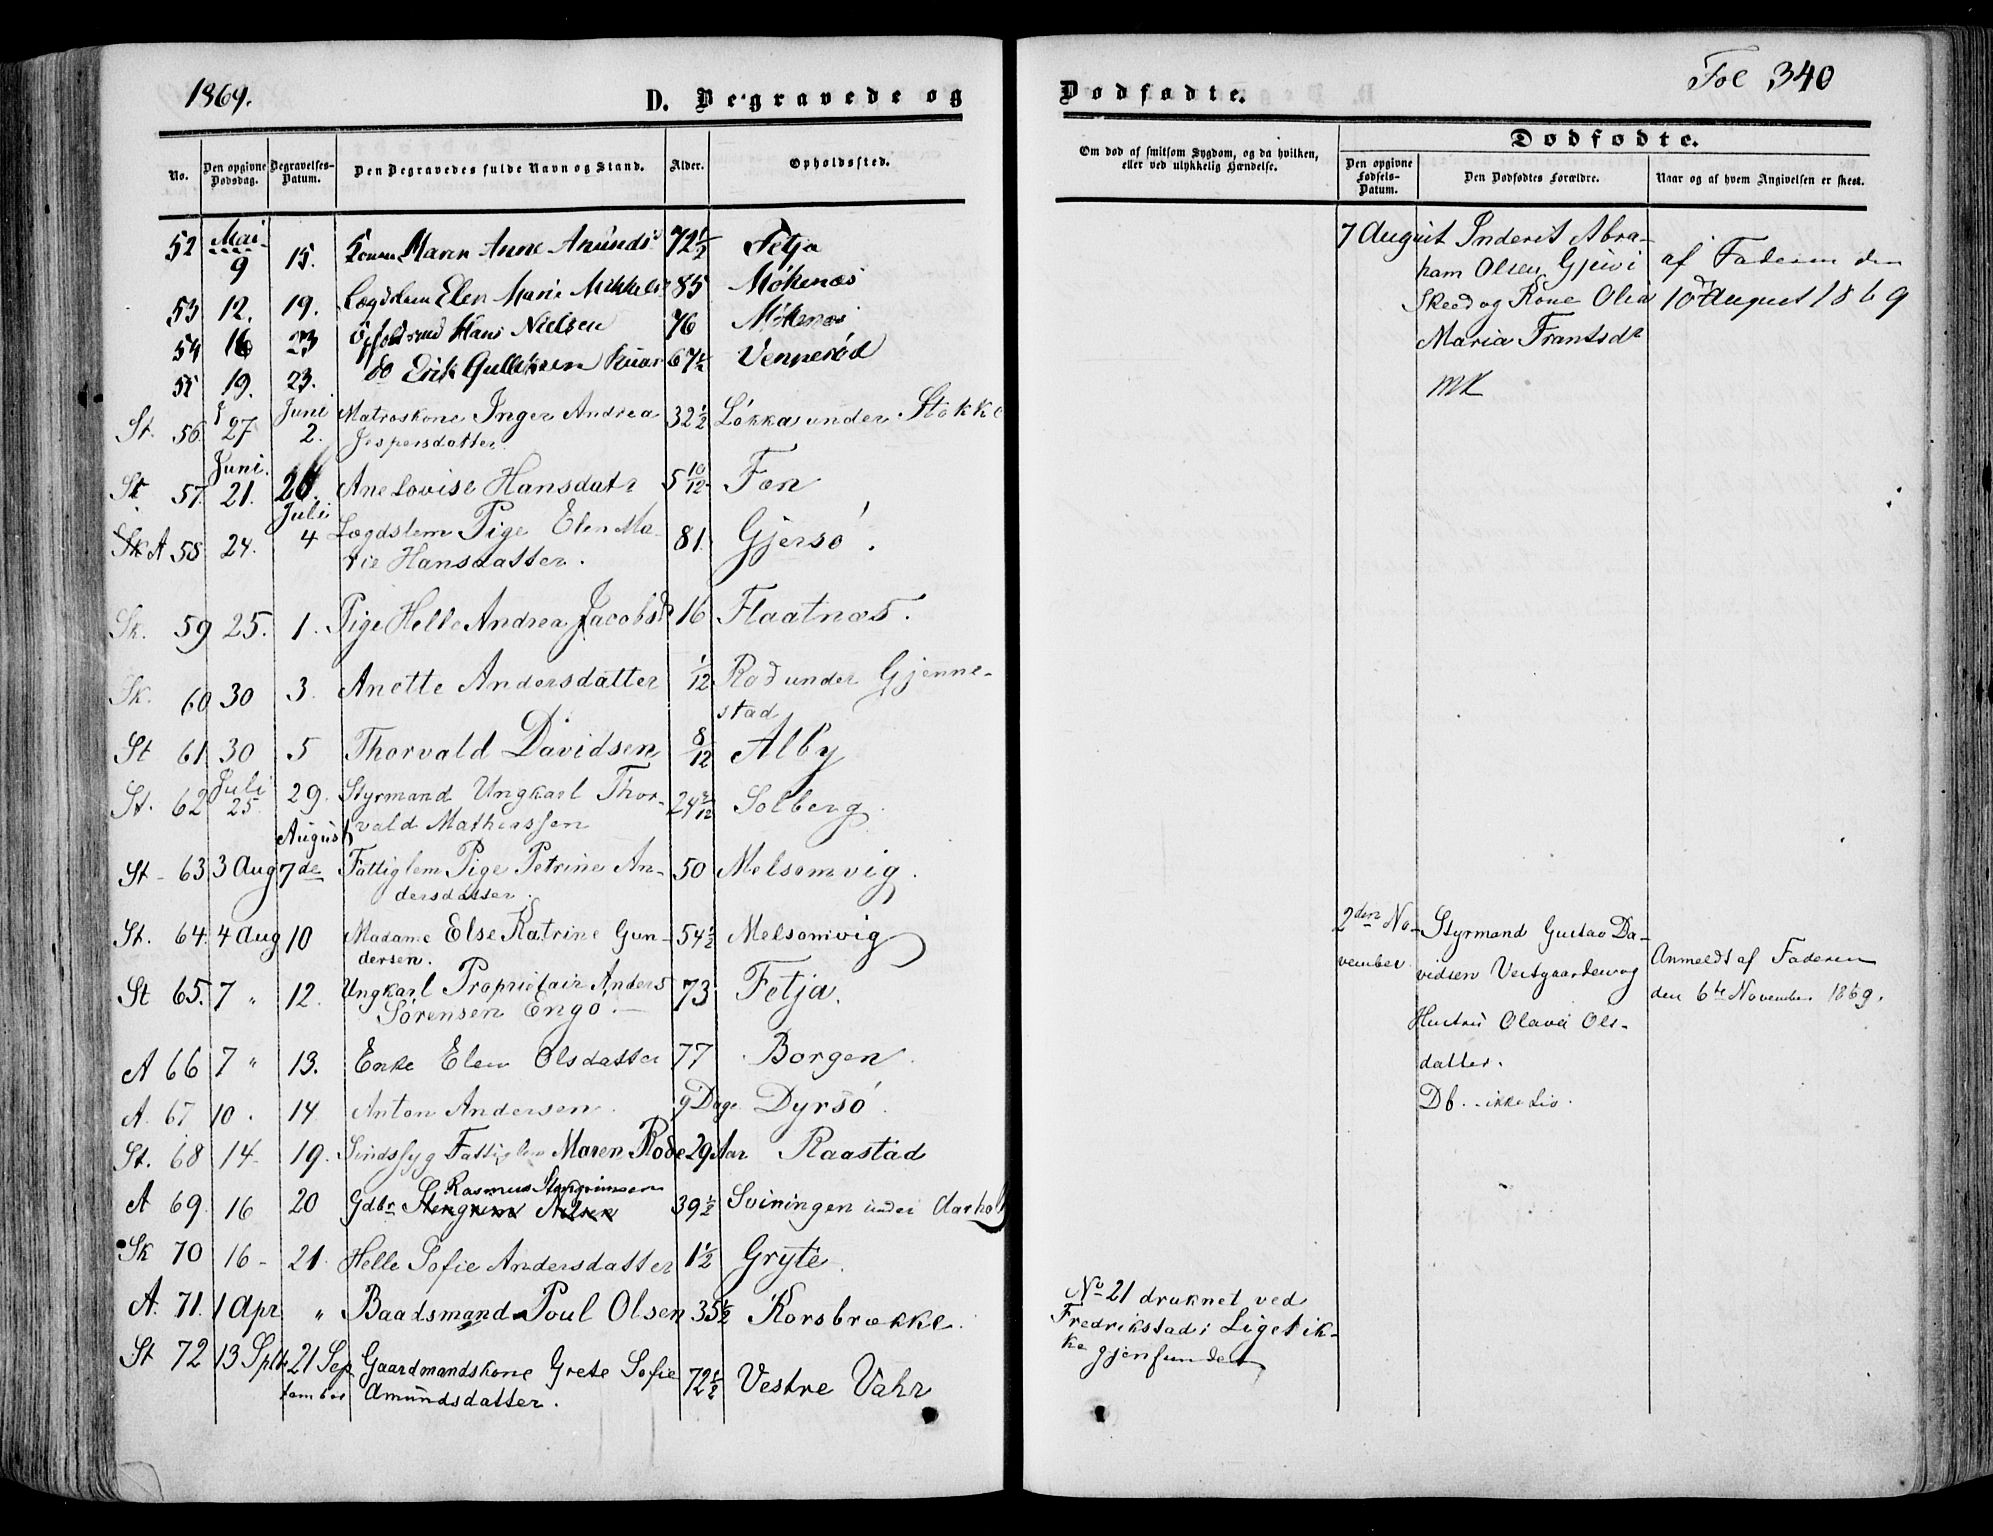 1869.
D. Begravede og
No.
Den opgivne Dødsdag.
Begravelses-Datum.
Den Begravedes fulde Navn og Stand.
Alder.
Opholdssted.
52 Mai 9 15. Maren Anne Amunds 72 1/2 Fetja
53 12. 19. Lægdslem Elen Marie Mikkels 85 Møkenæs
54 16 23 Hans Nielsen 76 Møkenæs
55 19. 23. do Erik Gulliksen 67 1/2 Vennerød
Juni
St. 56. 27 2. Matroskone Inger Andrea 32 1/2 Løkka under Stokke
Jespersdatter
Juni.
St 57. 21. 26. Ane Lovise Hansdatr 5 10/12 Fen
Juli
A 58 24. 4 Lægdslem Pige Elen Ma- 81. Gjersø.
rie Hansdatter.
Sk. 59 25. 1. Pige Helle Andrea Jacobsdr 16 Flaatnæs.
Sk. 60 30 3. Anette Andersdatter 1/12 Rød under Gjenne-
stad
St 61 30 5 Thorvald Davidsen 8/12 Alby
Juli
St. 62 25 29. Styrmand Ungkarl Thor- 24 Solberg.
August vald Mathiassen
St 63 3 Aug 7de Fattiglem Pige Petrine An- 50 Melsomvig.
dersdatter.
St. 64. 4 Aug 10 Madame Else Katrine Gun- 54 1/2 Melsomvig
dersen.
St 65. 7 " 12. Ungkarl Proprietair Anders 73 Fetja.
Sørensen Engø.
A 66 7 " 13. Enke Elen Olsdatter 77 Borgen.
A. 67 10. 14 Anton Andersen. 9 Dage Dyrsø.
St. 68 14 19. Sindssyg Fattiglem Maren Rode 29 Aar Raastad
Rasmus Stengrimsen
A 69 16 20 Gdbr Stengrim Nilsen 39 1/2 Sviningen under Aarholt
Sk 70 16 - 21. Helle Sofie Andersdatter 1 1/2 Gryte.
A. 71. 1 Apr " Baadsmand Poul Olsen 35 1/2 Korsbrække.
St 72 13 Septb 21 Sep Gaardmandskone Grete Sofie 72 1/2 Vestre Vahr
tember Amundsdatter.
Dødfødte.
Fol 340
Om død af smitsom Sygdom, og da hvilken,
eller ved ulykkelig Hændelse.
Dødfødte.
Den opgivne Fødsels-Datum.
Den Dødfødtes Forældre.
Naar og af hvem Angivelsen er skeet.
7 August Inderst Abra-
ham Olsen Gjevi
Skeed og Kone Olia
Maria Frantsdr
MK
af Faderen den
10d August 1869
2den No-
vember
Styrmand Gustav Da-
vidsen Vestgaarden og
Hustru Olava Ols-
datter.
Db. ikke Liv.
Anmeldt af Faderen
den 6te November 1869.
No 21 druknet ved
Fredrikstad; Liget ik-
ke gjenfundet